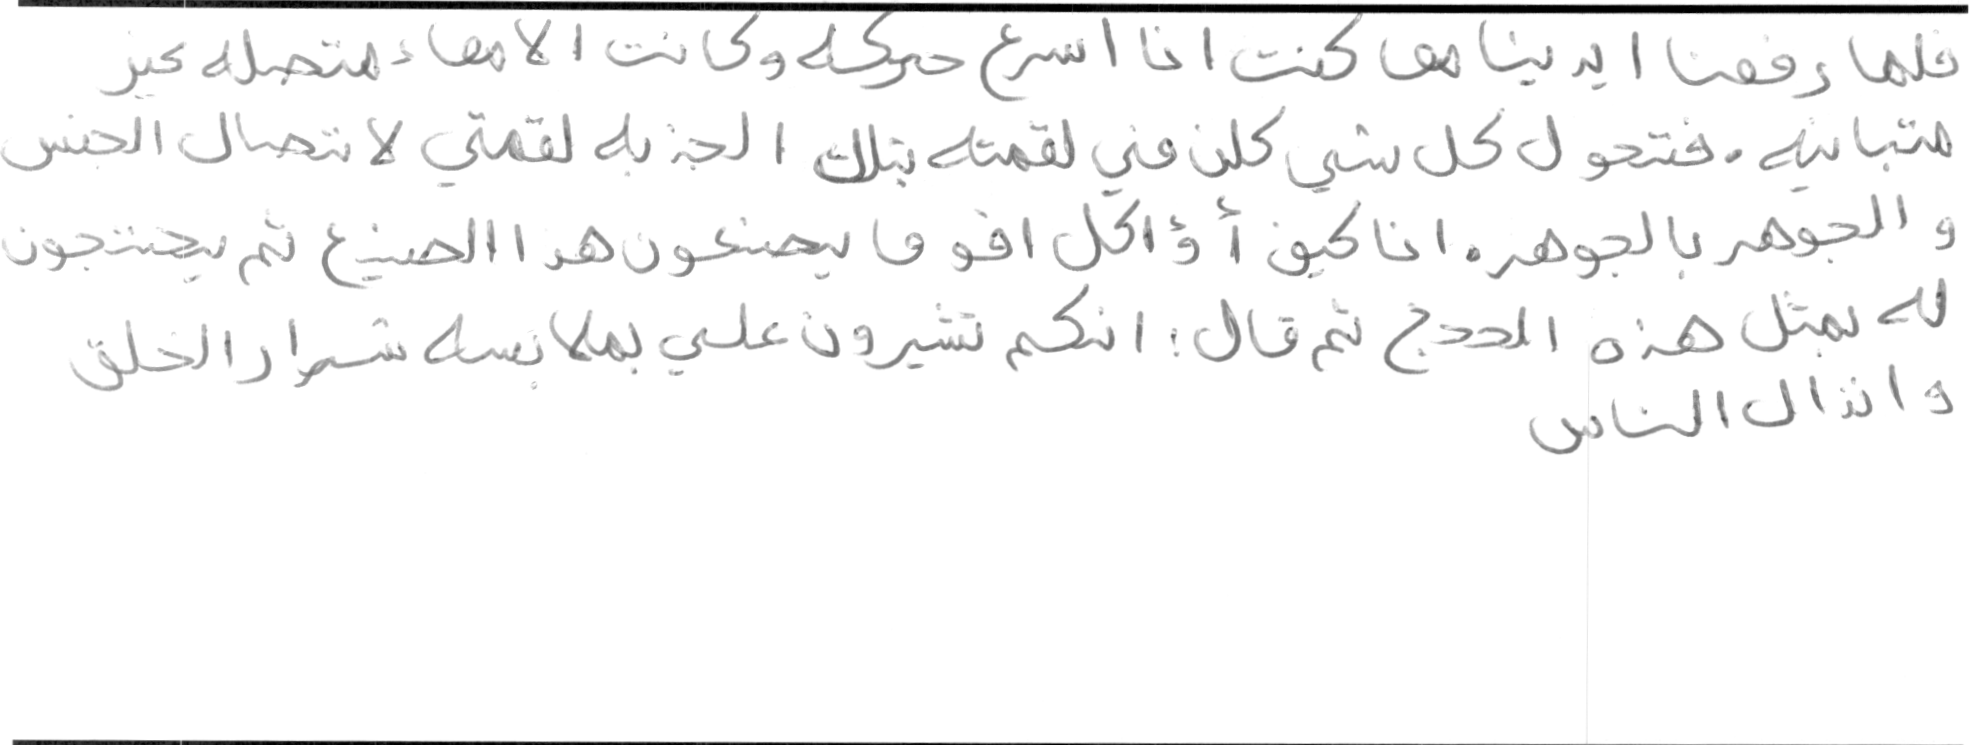 فلما رفعنا ايدينا معا كنت انا اسرع حركه وكانت الامعاء متصله غير
متباينه. فتحول كل شي كان في لقمته بتلك الجذبه لقمتي لاتصال الجنس
والجوهر بالجوهر. انا كيف أؤاكل اقوما يصنعون هذا الصنيع ثم يحتجون
له بمثل هذه الحجج ثم قال: انكم تشيرون علي بملابسه شرار الخلق
وانذال الناس